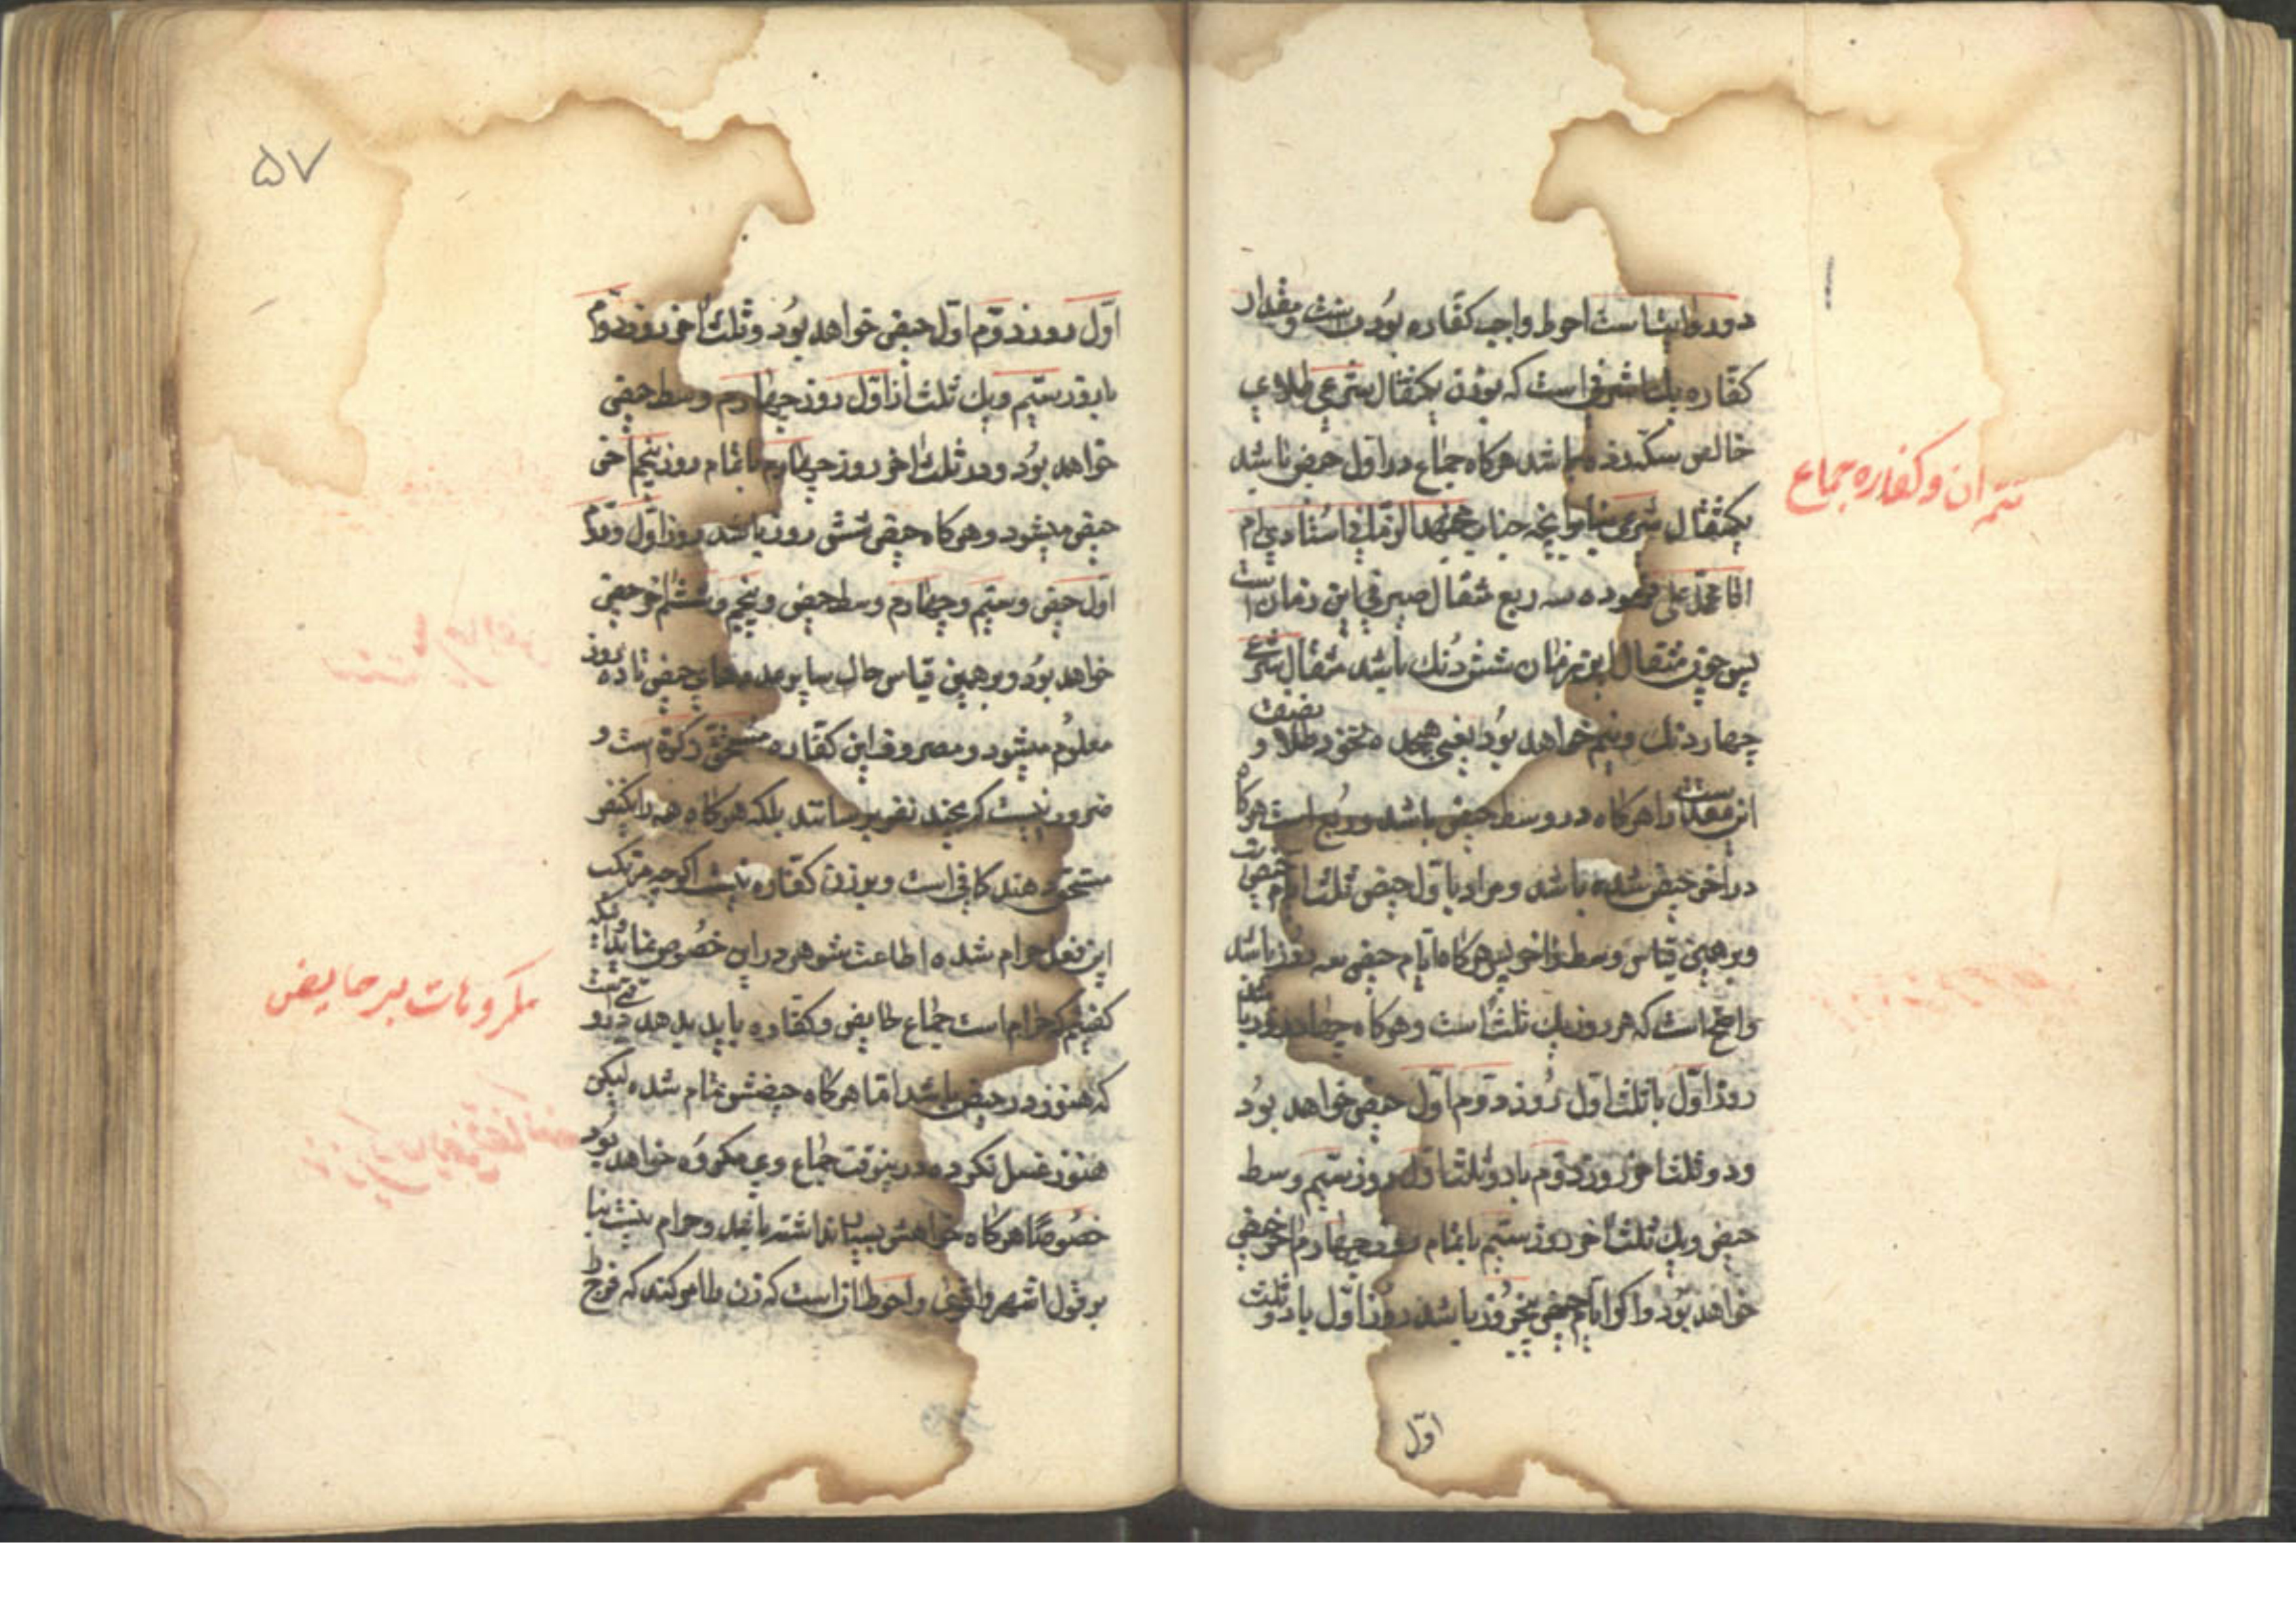 تتمه ان و کفاره جماع
دو روایت است احوط واجب کفاره بودنست و مقدار
کفاره یک اشرفی است که بوزن یکمثقال شرعی طلای
خالص سکه زده باشد هرکاه جماع در اول حیض باشد
یکمثقال شرعی بنابر انچه جناب استادی ام
اقا محمد علی فرموده سه ربع مثقال صیرفی این زمان است
پس چون مثقال این زمان شش دنک باشد مثقال شرعی
چهار دنک و نیم خواهد بود یعنی هجده نخود طلا و نصف
این مقدار است هرکاه در وسط حیض باشد و ربع است هرکاه
در اخر حیض شده باشد و مراد باول حیض ثلث ایام حیض
و برهمین قیاس وسط و اخر پس هرکاه ایام حیض سه روز باشد
واضح است که هر روز یک ثلث است و هرکاه چهار روز باشد
روز اول با ثلث اول روز دوم اول حیض خواهد بود
و دو ثلث اخر روز دوم با دو ثلث اول روز سیم وسط
حیض و یک ثلث اخر روز سیم با تمام روز چهارم اخر حیض
خواهد بود و اکر ایام حیض پنجروز باشد روز اول با دو ثلث
اول
۵۷
اول روز دوم اول حیض خواهد بود و ثلث اخر روز دوم
با روز سیم و یک ثلث از اول روز چهارم وسط حیض
خواهد بود و دو ثلث اخر روز چهارم با تمام روز پنجم اخر
حیض میشود و هرکاه حیض شش روز باشد روز اول و دوم
اول حیض و سیم و چهارم وسط حیض و پنجم و ششم اخر حیض
خواهد بود و برهمین قیاس حال سایر عددهای حیض تا ده روز
معلوم میشود و مصروف این کفاره مستحق زکوة است و
ضرور نیست که بچند نفر برسانند بلکه هرکاه همه را بیکنفر
مستحق دهند کافی است و بر زن کفاره نیست اکرچه مرتکب
این فعل حرام شده اطاعت شوهر در این خصوص نماید و انکه
کفتیم که حرام است جماع حایض و کفاره باید بدهد در وقتی است
که هنوز در حیض باشد اما هرکاه حیضش تمام شده لیکن
هنوز غسل نکرده در ینوقت جماع وی مکروه خواهد بود
خصوصا هرکاه خواهش بسیار نداشته باشد و حرام نیست بنا
بر قول اشهر و اقوی و احوط ان است که زن را امر کند که فرج را
مکروهات بر حایض